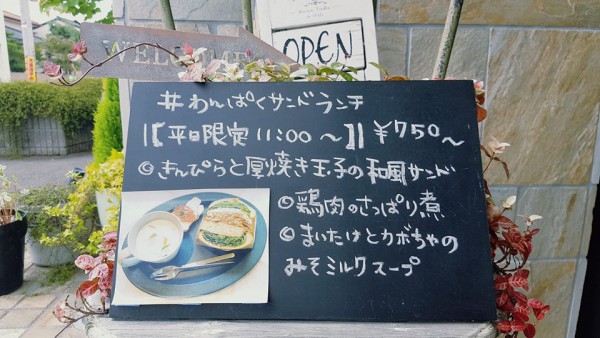 WELCOME
OPEN
#わんぱくサンドランチ
【平日限定 11:00〜】 ¥750〜
◎きんぴらと厚焼き玉子の和風サンド
◎鶏肉のさっぱり煮
◎まいたけとカボちゃの
みそミルクスープ